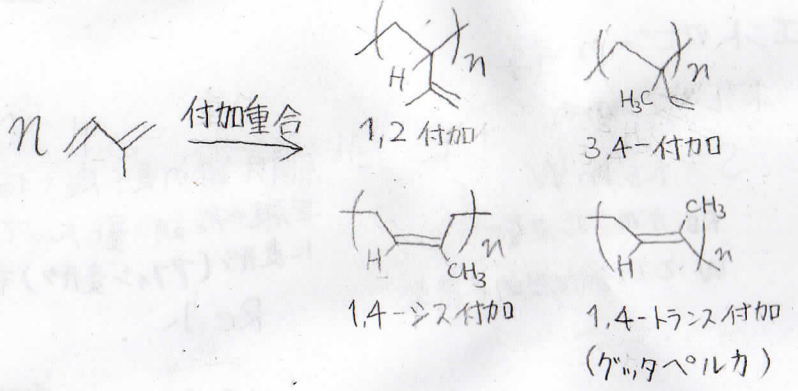 n
付加重合
H
n
1,2付加
H₃C
n
3,4-付加
H
CH₃
n
1,4-シス付加
CH₃
H
n
1,4-トランス付加
(グッタペルカ)